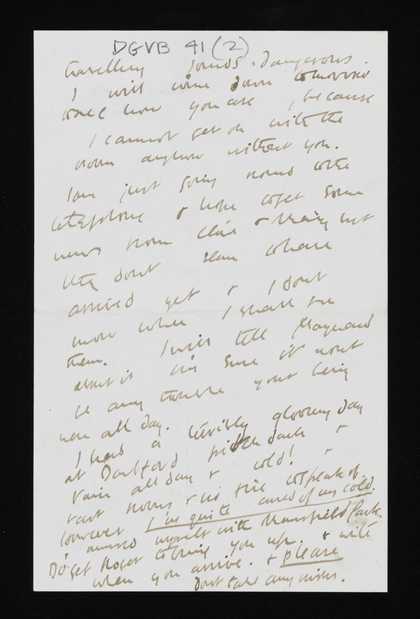 DGVB 41 (2)
travelling sounds dangerous.
I will come down tomorrow
& see how you are, because
I cannot get on with the
room anyhow without you.
I am just going round to the
telephone & hope to get some
news from Clive & Mary but
they don't seem to have
arrived yet & I don't
know when I shall see
them. I will tell Maynard
about it I'm sure it won't
be any trouble your being
here all day.
I had a terribly gloomy day
at Dartford pitch dark &
rain all day & cold! &
vast rooms & no fire to speak of.
However I am quite cured of my cold.
nursed myself with Mansfield Park.
Do get Roger to bring you up. & will
when you arrive. & please
dont take any risks.